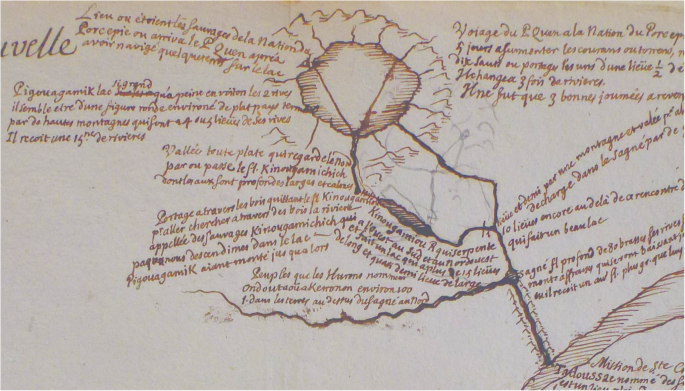 uvelle
Lieu ou etoient les sauvages de la Nation du
Porcepic ou arriva le P. Quen apres
avoir navigé quelque tems sur le lac
Voiage du P. Quen a la Nation du Porcepi
5 jours a surmonter les courans ou torrens,
dix sauts ou portages les uns d'une lieüe 1/2
Il changea 3 fois de rivieres.
Il ne fut que 3 bonnes journées a reve
Pigouagamik lac si grand qu'a peine en voit on les 2 rives
il semble etre d'une figure ronde environé de plat pays
par de hautes montagnes qui sont a 4 ou 5 lieües de ses rives
Il recoit une 15ne de rivieres
Vallée toute plate qui regarde le Nor
par ou passe le fl. Kinougamichich
dont les eaux sont profondes larges et
Portage a travers les bois quittant le fl. Kinougamichich
pr aller chercher a travers des bois la riviere
appellée des sauvages Kinougamichich qui
nous descendimes dans le lac
Pigouagamik aiant monté jusqu'alors
Kinougamiou R. qui serpente
a l'ouest au sud et au Nordouest
et fait un lac qui a plus de 15 lieües
de long et une demi lieüe de large
Peuples que les Hurons nomment
Ondoutaouakeronon environ 100
l. dans les terres au dessus du sagné au Nord
lieüe et demi par une montagne et valée
decharge dans le Sagné par de
10 lieües encore au dela de ce rencontre
qui fait un beau lac
Sagné fl. profond de 80 brasses ses rives
mont. affreuses
ou il recoit un
Mission de Ste C
Tadoussac nommé des